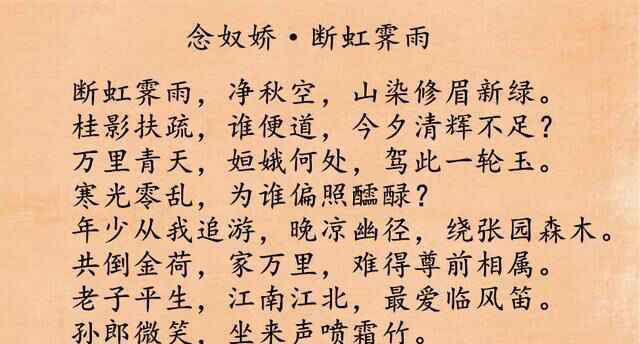 念奴娇·断虹霁雨
断虹霁雨，净秋空，山染修眉新绿。
桂影扶疏，谁便道，今夕清辉不足？
万里青天，姮娥何处，驾此一轮玉。
寒光零乱，为谁偏照醽醁？
年少从我追游，晚凉幽径，绕张园森木。
共倒金荷，家万里，难得尊前相属。
老子平生，江南江北，最爱临风笛。
孙郎微笑，坐来声喷霜竹。